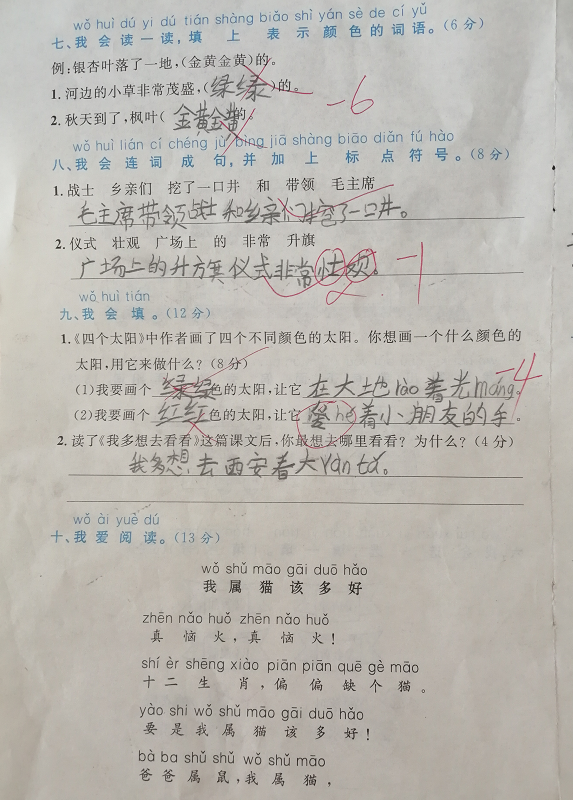 wǒ huì dú yi dú tián shàng biǎo shì yán sè de cí yǔ
七、我会读一读,填上表示颜色的词语。(6分)
例:银杏叶落了一地,(金黄金黄)的。
1.河边的小草非常茂盛,(绿绿)的。
-6
2.秋天到了,枫叶(金黄金黄)的。
wǒ huì lián cí chéng jù bìng jiā shàng biāo diǎn fú hào
八、我会连词成句,并加上标点符号。(8分)
1.战士 乡亲们 挖了一口井 和 带领 毛主席
毛主席带领战士和乡亲们挖了一口井。
2.仪式 壮观 广场上 的 非常 升旗
广场上的升旗仪式非常壮观。
-1
wǒ huì tián
九、我会填。(12分)
1.《四个太阳》中作者画了四个不同颜色的太阳。你想画一个什么颜色的
太阳,用它来做什么?(8分)
-4
(1)我要画个 绿绿 色的太阳,让它 在大地 rào 着光 máng。
(2)我要画个 红红 色的太阳,让它 爱 hē 着小朋友的手。
2.读了《我多想去看看》这篇课文后,你最想去哪里看看?为什么?(4分)
我多想去西安看大 yàn tǎ。
wǒ ài yuè dú
十、我爱阅读。(13分)
wǒ shǔ māo gāi duō hǎo
我属猫该多好
zhēn nǎo huǒ zhēn nǎo huǒ
真恼火,真恼火!
shí èr shēng xiào piān piān quē gè māo
十二生肖,偏偏缺个猫。
yào shi wǒ shǔ māo gāi duō hǎo
要是我属猫该多好!
bà ba shǔ shǔ wǒ shǔ māo
爸爸属鼠,我属猫,